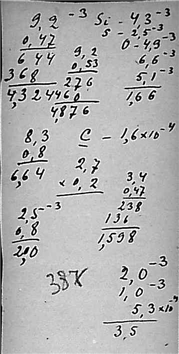 9,2 -3 Si - 4,3 -3
0,47 S - 2,5 -3
644 9,2 0 - 4,9 -3
368 0,53 6,6 -3
4,324 276 5,1 -3
460 1,66
4,876
8,3 C - 1,6×10 -4
0,8
6,64 2,7
× 0,2 3,4
0,47
2,5 -3 238
0,8 136
2,00 1,598
38К 2,0 -3
1,0 -3
5,3 ×10 -4
3,5